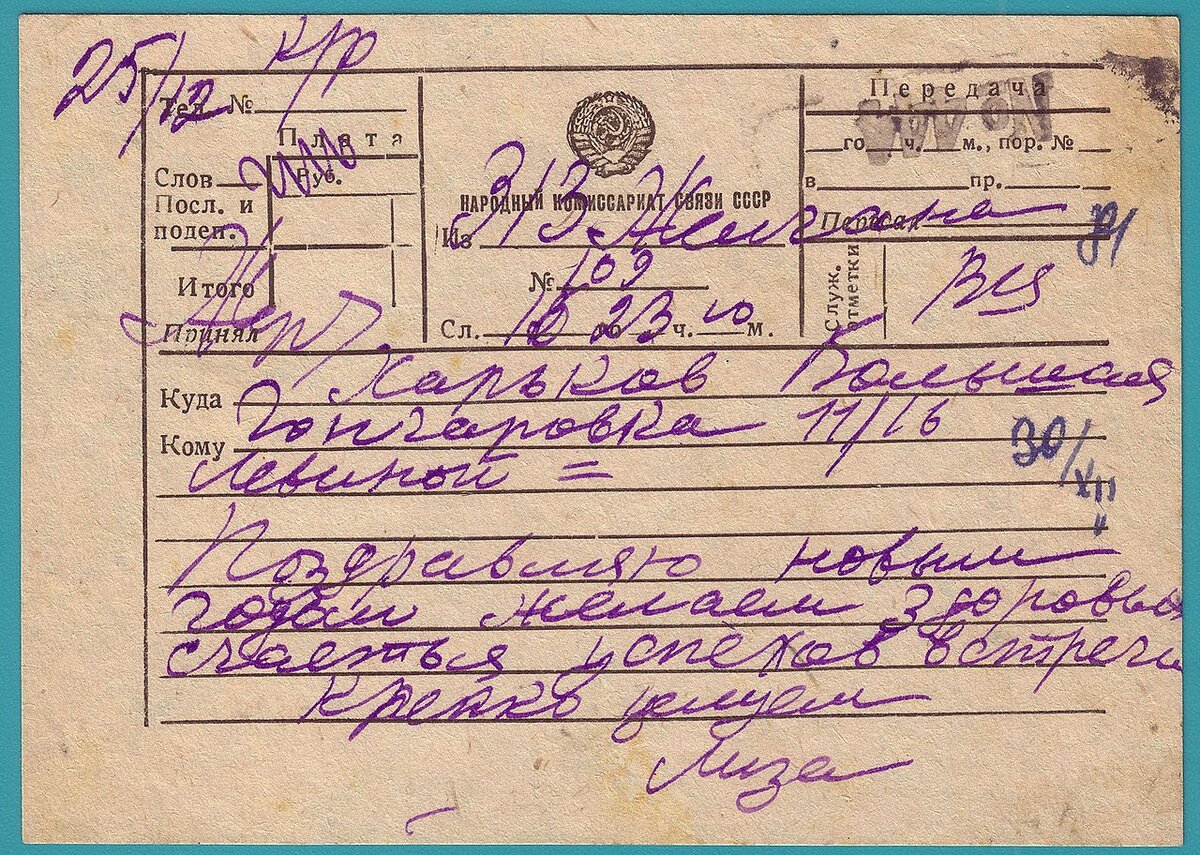 25/12 К/р
Тел. №
Плата
Слов Руб.
Посл. и
подеп.
Итого
Принял
НАРОДНЫЙ КОМИССАРИАТ СВЯЗИ СССР
Из 313
№ 109
Сл. 16 го 23 ч. 10 м.
Передача
го ч. м., пор. №
в пр.
Передал
Служ. отметки
Куда Харьков Большая
Кому Гончаровка 11/16
Левиной =
30/XII
Поздравляю новым
годом желаем здоровья
счастья успехов встречи
крепко целуем
Лиза